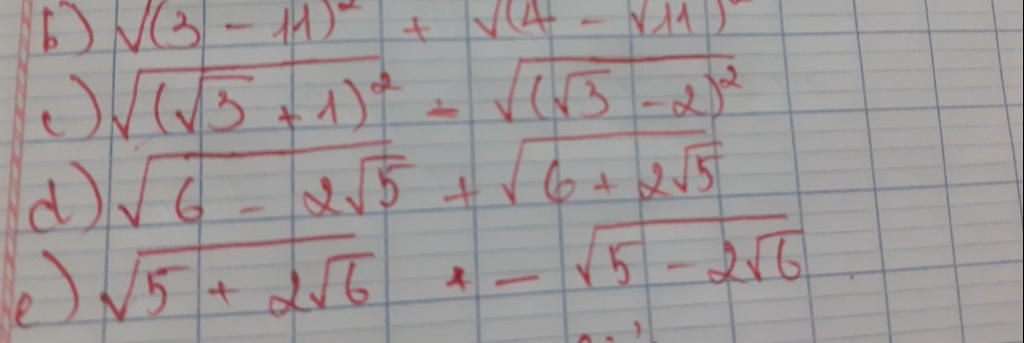 b) √(3 - 11)² + √(4 - √11)
c) √(√3 + 1)² - √(√3 - 2)²
d) √6 - 2√5 + √6 + 2√5
e) √5 + 2√6 - √5 - 2√6